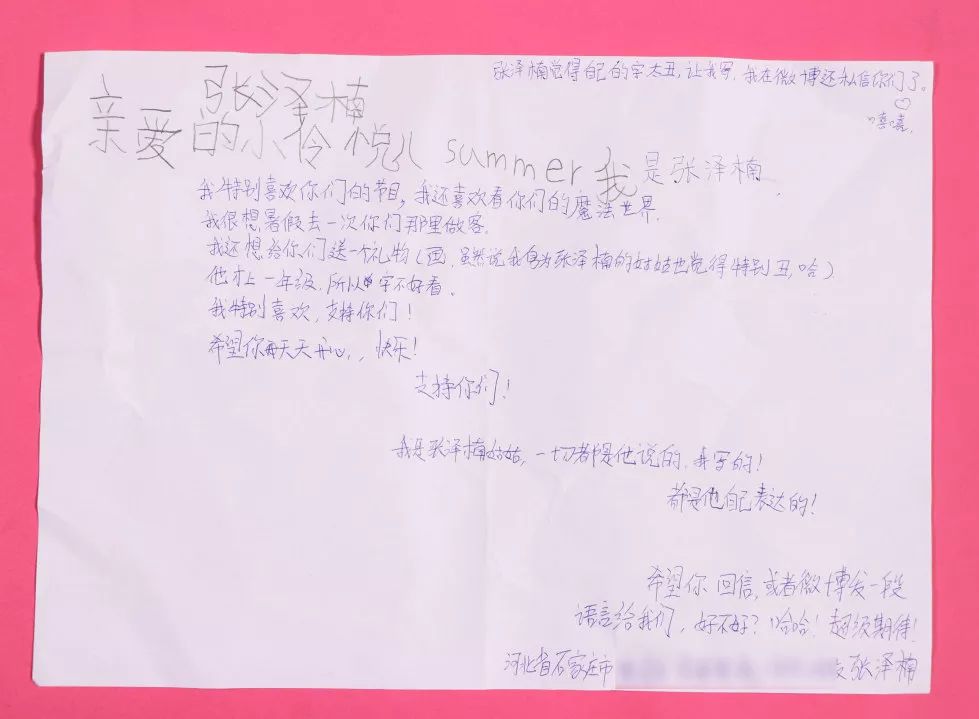 张泽楠觉得自己的字太丑,让我写,我在微博还私信你们了。
♡
嘻嘻.
张泽楠
亲爱的小伶悦儿summer我是张泽楠
我特别喜欢你们的节目,我还喜欢看你们的魔法世界.
我很想暑假去一次你们那里做客.
我还想给你们送一个礼物(画,虽然说我身为张泽楠的姑姑也觉得特别丑,哈)
他才上一年级,所以字不好看.
我特别喜欢,支持你们!
希望你每天天开心,,快乐!
支持你们!
我是张泽楠姑姑,一切都是他说的,我写的!
都是他自己表达的!
希望你回信,或者微博发一段
语言给我们,好不好?哈哈!超级期待!
河北省石家庄市
张泽楠